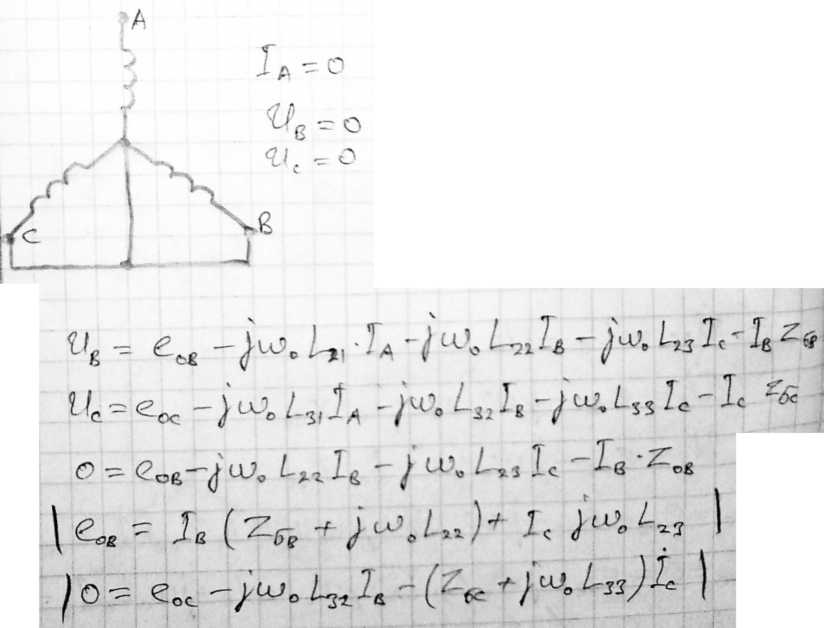 A
I_A = 0
U_B = 0
U_c = 0
C
B
U_B = e_OB - jω_0 L_21 · I_A - jω_0 L_22 I_B - jω_0 L_23 I_c - I_B Z_бв
U_c = e_oc - jω_0 L_31 I_A - jω_0 L_32 I_B - jω_0 L_33 I_c - I_c Z_бc
0 = e_OB - jω_0 L_22 I_B - jω_0 L_23 I_c - I_B · Z_OB
| e_OB = I_B (Z_бв + jω_0 L_22) + I_c jω_0 L_23 |
| 0 = e_oc - jω_0 L_32 I_B - (Z_бc + jω_0 L_33) İ_c |